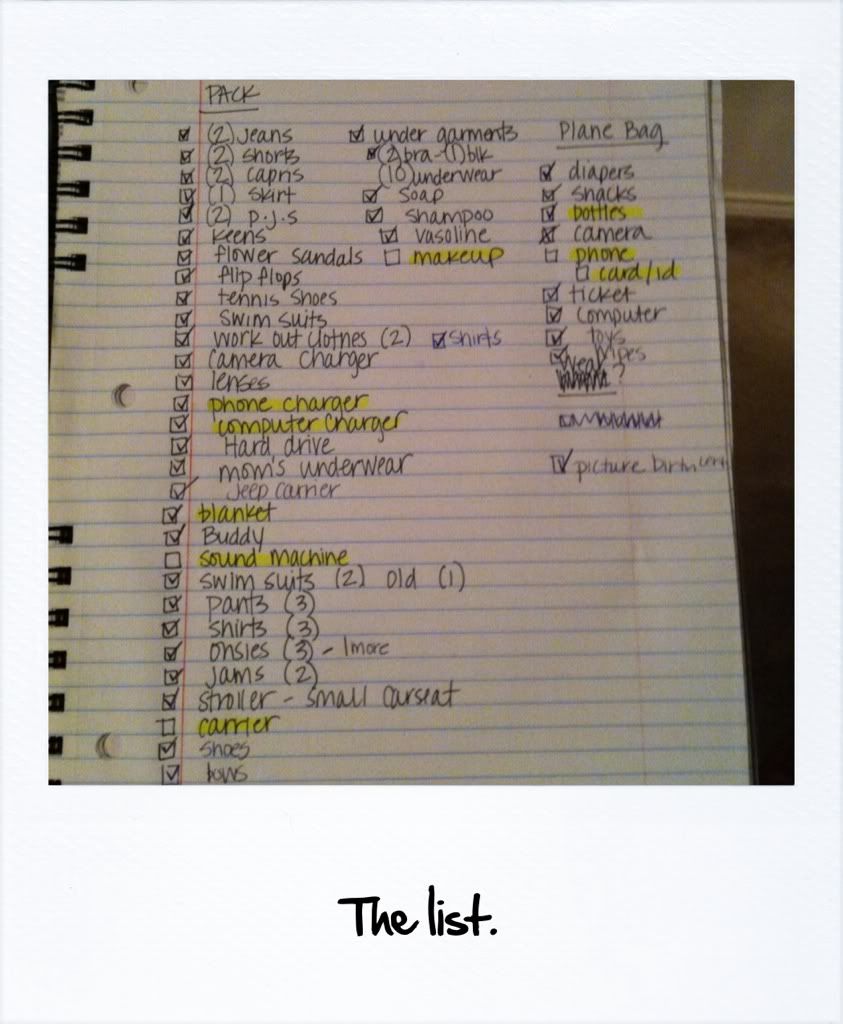 PACK
(2) jeans
(2) shorts
(2) capris
(1) skirt
(2) p.j.s
keens
flower sandals
flip flops
tennis shoes
swim suits
work out clothes (2)
camera charger
lenses
phone charger
computer charger
Hard drive
mom's underwear
Jeep carrier
blanket
Buddy
sound machine
swim suits (2) old (1)
pants (3)
shirts (3)
onsies (3) - 1 more
jams (2)
stroller - small carseat
carrier
shoes
bows
under garments
(2) bra - (1) blk
(10) underwear
soap
shampoo
vasoline
makeup
shirts
Plane Bag
diapers
snacks
bottles
camera
phone
card/id
ticket
computer
toys
wipes
?
picture birth cert
The list.